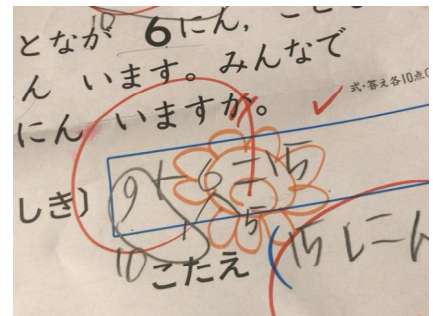 10
となが 6にん, こど
ん います。みんなで
にん いますか。
式・答え各10点
しき) 9+6=15
1 5
10 こたえ 15にん